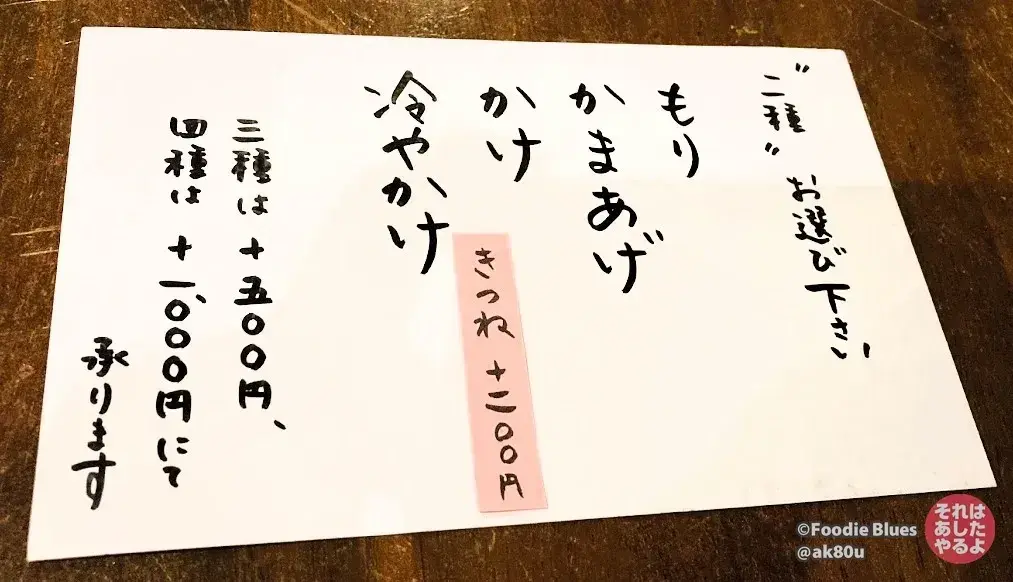 ”二種” お選び下さい
もり
かまあげ
かけ
きつね +二〇〇円
冷やかけ
三種は +五〇〇円、
四種は +一、〇〇〇円にて
承ります
©Foodie Blues
@ak80u
それは
あした
やるよ